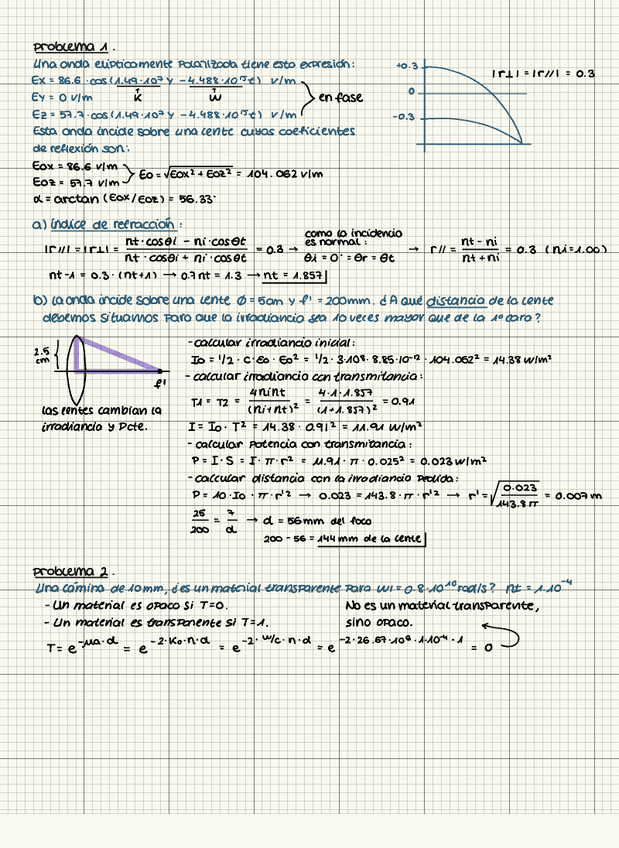 Problema 1.
Una onda elípticamente polarizada tiene esta expresión:
Ex = 86.6 · cos (1.49·10⁷ y - 4.488·10¹⁵t) V/m
Ey = 0 V/m
K
W
en fase
Ez = 57.7 · cos (1.49·10⁷ y - 4.488·10¹⁵t) V/m
Esta onda incide sobre una lente cuyos coeficientes
de reflexión son:
+0.3
0
-0.3
|r⊥| = |r//| = 0.3
Eox = 86.6 V/m
Eoz = 57.7 V/m
Eo = √Eox² + Eoz² = 104.062 V/m
α = arctan (Eox/Eoz) = 56.33°
a) índice de refracción:
|r//| = |r⊥| = (nt·cosθi - ni·cosθt) / (nt·cosθi + ni·cosθt) = 0.3 → como la incidencia es normal: θi = 0° = θr = θt → r// = (nt - ni) / (nt + ni) = 0.3 (ni = 1.00)
nt - 1 = 0.3 · (nt+1) → 0.7 nt = 1.3 → nt = 1.857
b) La onda incide sobre una lente ϕ = 5cm y f' = 200mm. ¿A qué distancia de la lente
debemos situarnos para que la irradiancia sea 10 veces mayor que de la 1ª cara?
2.5 cm
f'
las lentes cambian la
irradiancia y Pcte.
- calcular irradiancia inicial:
Io = 1/2 · c · εo · Eo² = 1/2 · 3·10⁸ · 8.85·10⁻¹² · 104.062² = 14.38 W/m²
- calcular irradiancia con transmitancia:
T1 = T2 = 4nint / (ni+nt)² = 4·1·1.857 / (1+1.857)² = 0.91
I = Io · T² = 14.38 · 0.91² = 11.91 W/m²
- calcular potencia con transmitancia:
P = I · S = I · π · r² = 11.91 · π · 0.025² = 0.023 W/m²
- calcular distancia con la irradiancia pedida:
P = 10 · Io · π · r'² → 0.023 = 143.8 · π · r'² → r' = √(0.023 / 143.8π) = 0.007 m
25/200 = 7/d → d = 56mm del foco
200 - 56 = 144 mm de la lente
Problema 2.
Una lámina de 10mm, ¿es un material transparente para WI = 0.8·10¹⁰ rad/s? nt = 1·10⁻⁴
- Un material es opaco si T=0.
- Un material es transparente si T=1.
No es un material transparente,
sino opaco.
T = e^(-μa·d) = e^(-2·Ko·n·d) = e^(-2·W/c·n·d) = e^(-2·26.67·10⁶·1·10⁻⁴·1) = 0